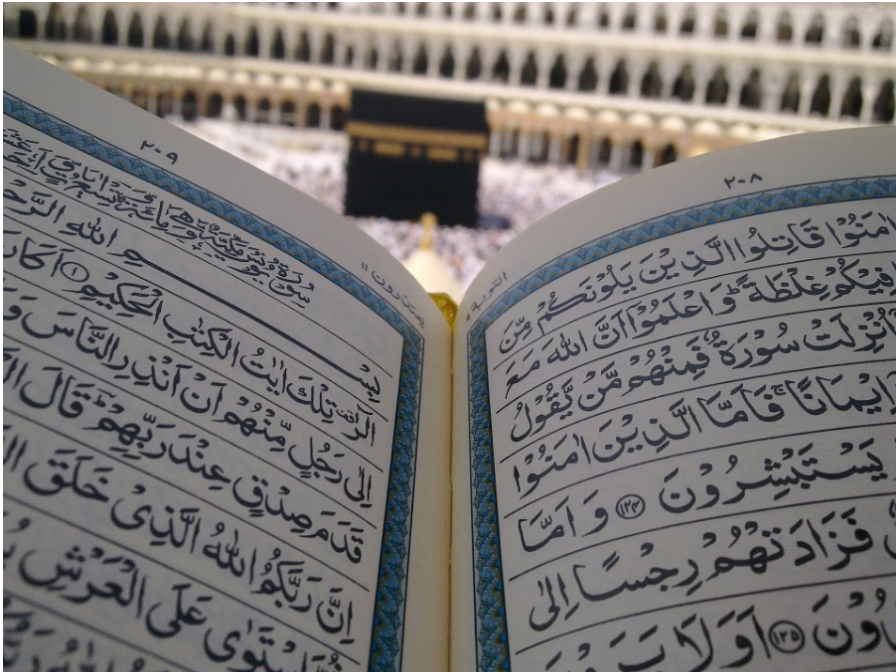 ٢٠٨
التوبة ٩
اٰمَنُوْا قَاتِلُوا الَّذِيْنَ يَلُوْنَكُمْ مِّنَ
فِيْكُمْ غِلْظَةً ؕ وَاعْلَمُوْۤا اَنَّ اللّٰهَ مَعَ
اُنْزِلَتْ سُوْرَةٌ فَمِنْهُمْ مَّنْ يَّقُوْلُ
اِيْمَانًا ۚ فَاَمَّا الَّذِيْنَ اٰمَنُوْا
يَسْتَبْشِرُوْنَ ﴿١٢٤﴾ وَاَمَّا
فَزَادَتْهُمْ رِجْسًا اِلٰى
﴿١٢٥﴾ اَوَلَا
٢٠٩
يعتذرون ١١
سُوْرَةُ يُوْنُسَ مَكِّيَّةٌ وَّهِيَ
بِسْمِ اللّٰهِ
الٓرٰ تِلْكَ اٰيٰتُ الْكِتٰبِ الْحَكِيْمِ ﴿١﴾ اَكَانَ
اِلٰى رَجُلٍ مِّنْهُمْ اَنْ اَنْذِرِ النَّاسَ
قَدَمَ صِدْقٍ عِنْدَ رَبِّهِمْ ؕ قَالَ
اِنَّ رَبَّكُمُ اللّٰهُ الَّذِيْ خَلَقَ
اسْتَوٰى عَلَى الْعَرْشِ